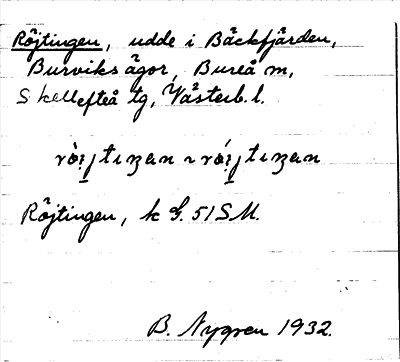 Röjtingen, udde i Bäckfjärden,
Burviks ägor, Bureå sn,
Skellefteå tg, Västerb. l.
Röjtingen, k G. 51 S M.
B. Nygren 1932.